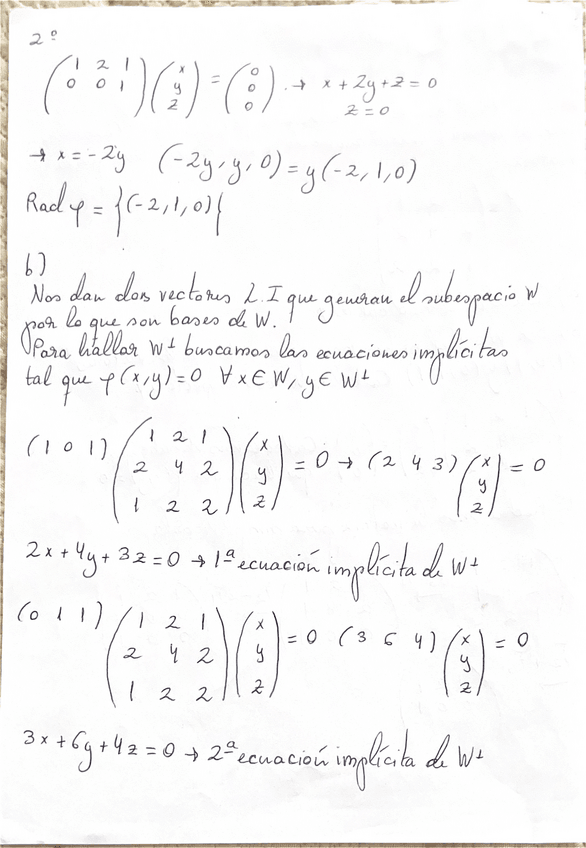 2º
(1 2 1
0 0 1) (x
y
z) = (0
0
0) → x + 2y + z = 0
z = 0
→ x = -2y (-2y, y, 0) = y(-2, 1, 0)
Rad φ = {(-2, 1, 0)}
b)
Nos dan dos vectores L.I que generan el subespacio W
por lo que son bases de W.
Para hallar W⊥ buscamos las ecuaciones implícitas
tal que φ(x,y)=0 ∀ x ∈ W, y ∈ W⊥
(1 0 1) (1 2 1
2 4 2
1 2 2) (x
y
z) = 0 → (2 4 3) (x
y
z) = 0
2x + 4y + 3z = 0 → 1ª ecuación implícita de W⊥
(0 1 1) (1 2 1
2 4 2
1 2 2) (x
y
z) = 0 (3 6 4) (x
y
z) = 0
3x + 6y + 4z = 0 → 2ª ecuación implícita de W⊥